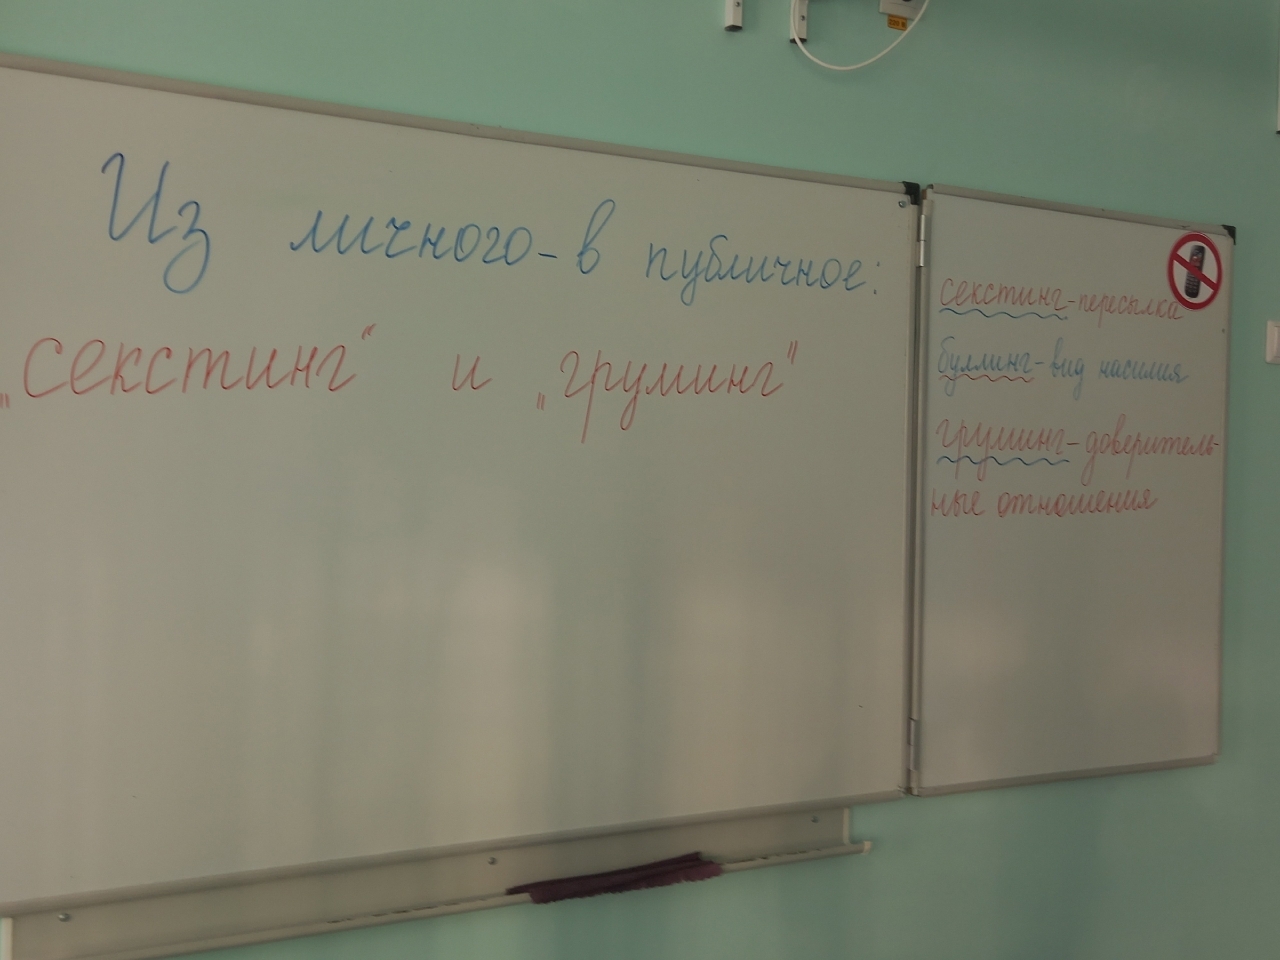 Из личного - в публичное:
„секстинг“ и „груминг"
секстинг - пересылка
буллинг - вид насилия
груминг - доверитель-
ные отношения